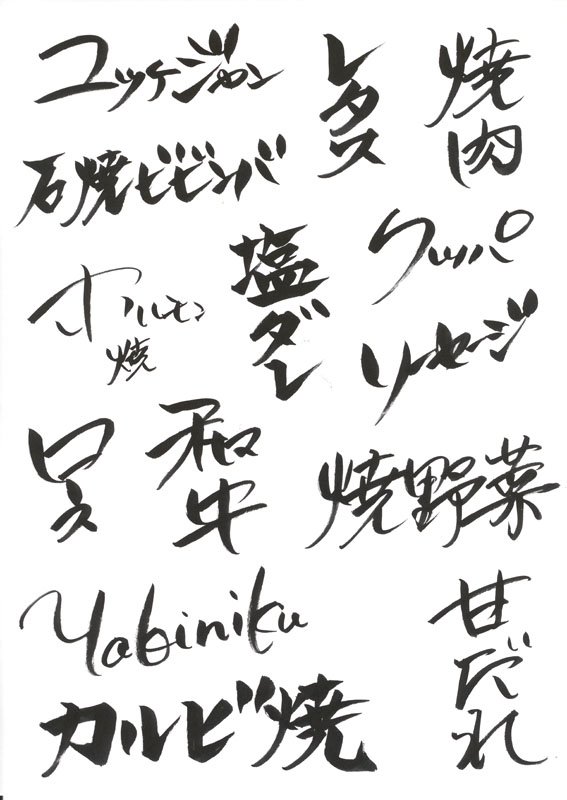 ユッケジャン
レタス
焼肉
石焼ビビンバ
クッパ
塩ダレ
ホルモン
焼
ソーセージ
ロース
和牛
焼野菜
Yakiniku
甘だれ
カルビ焼